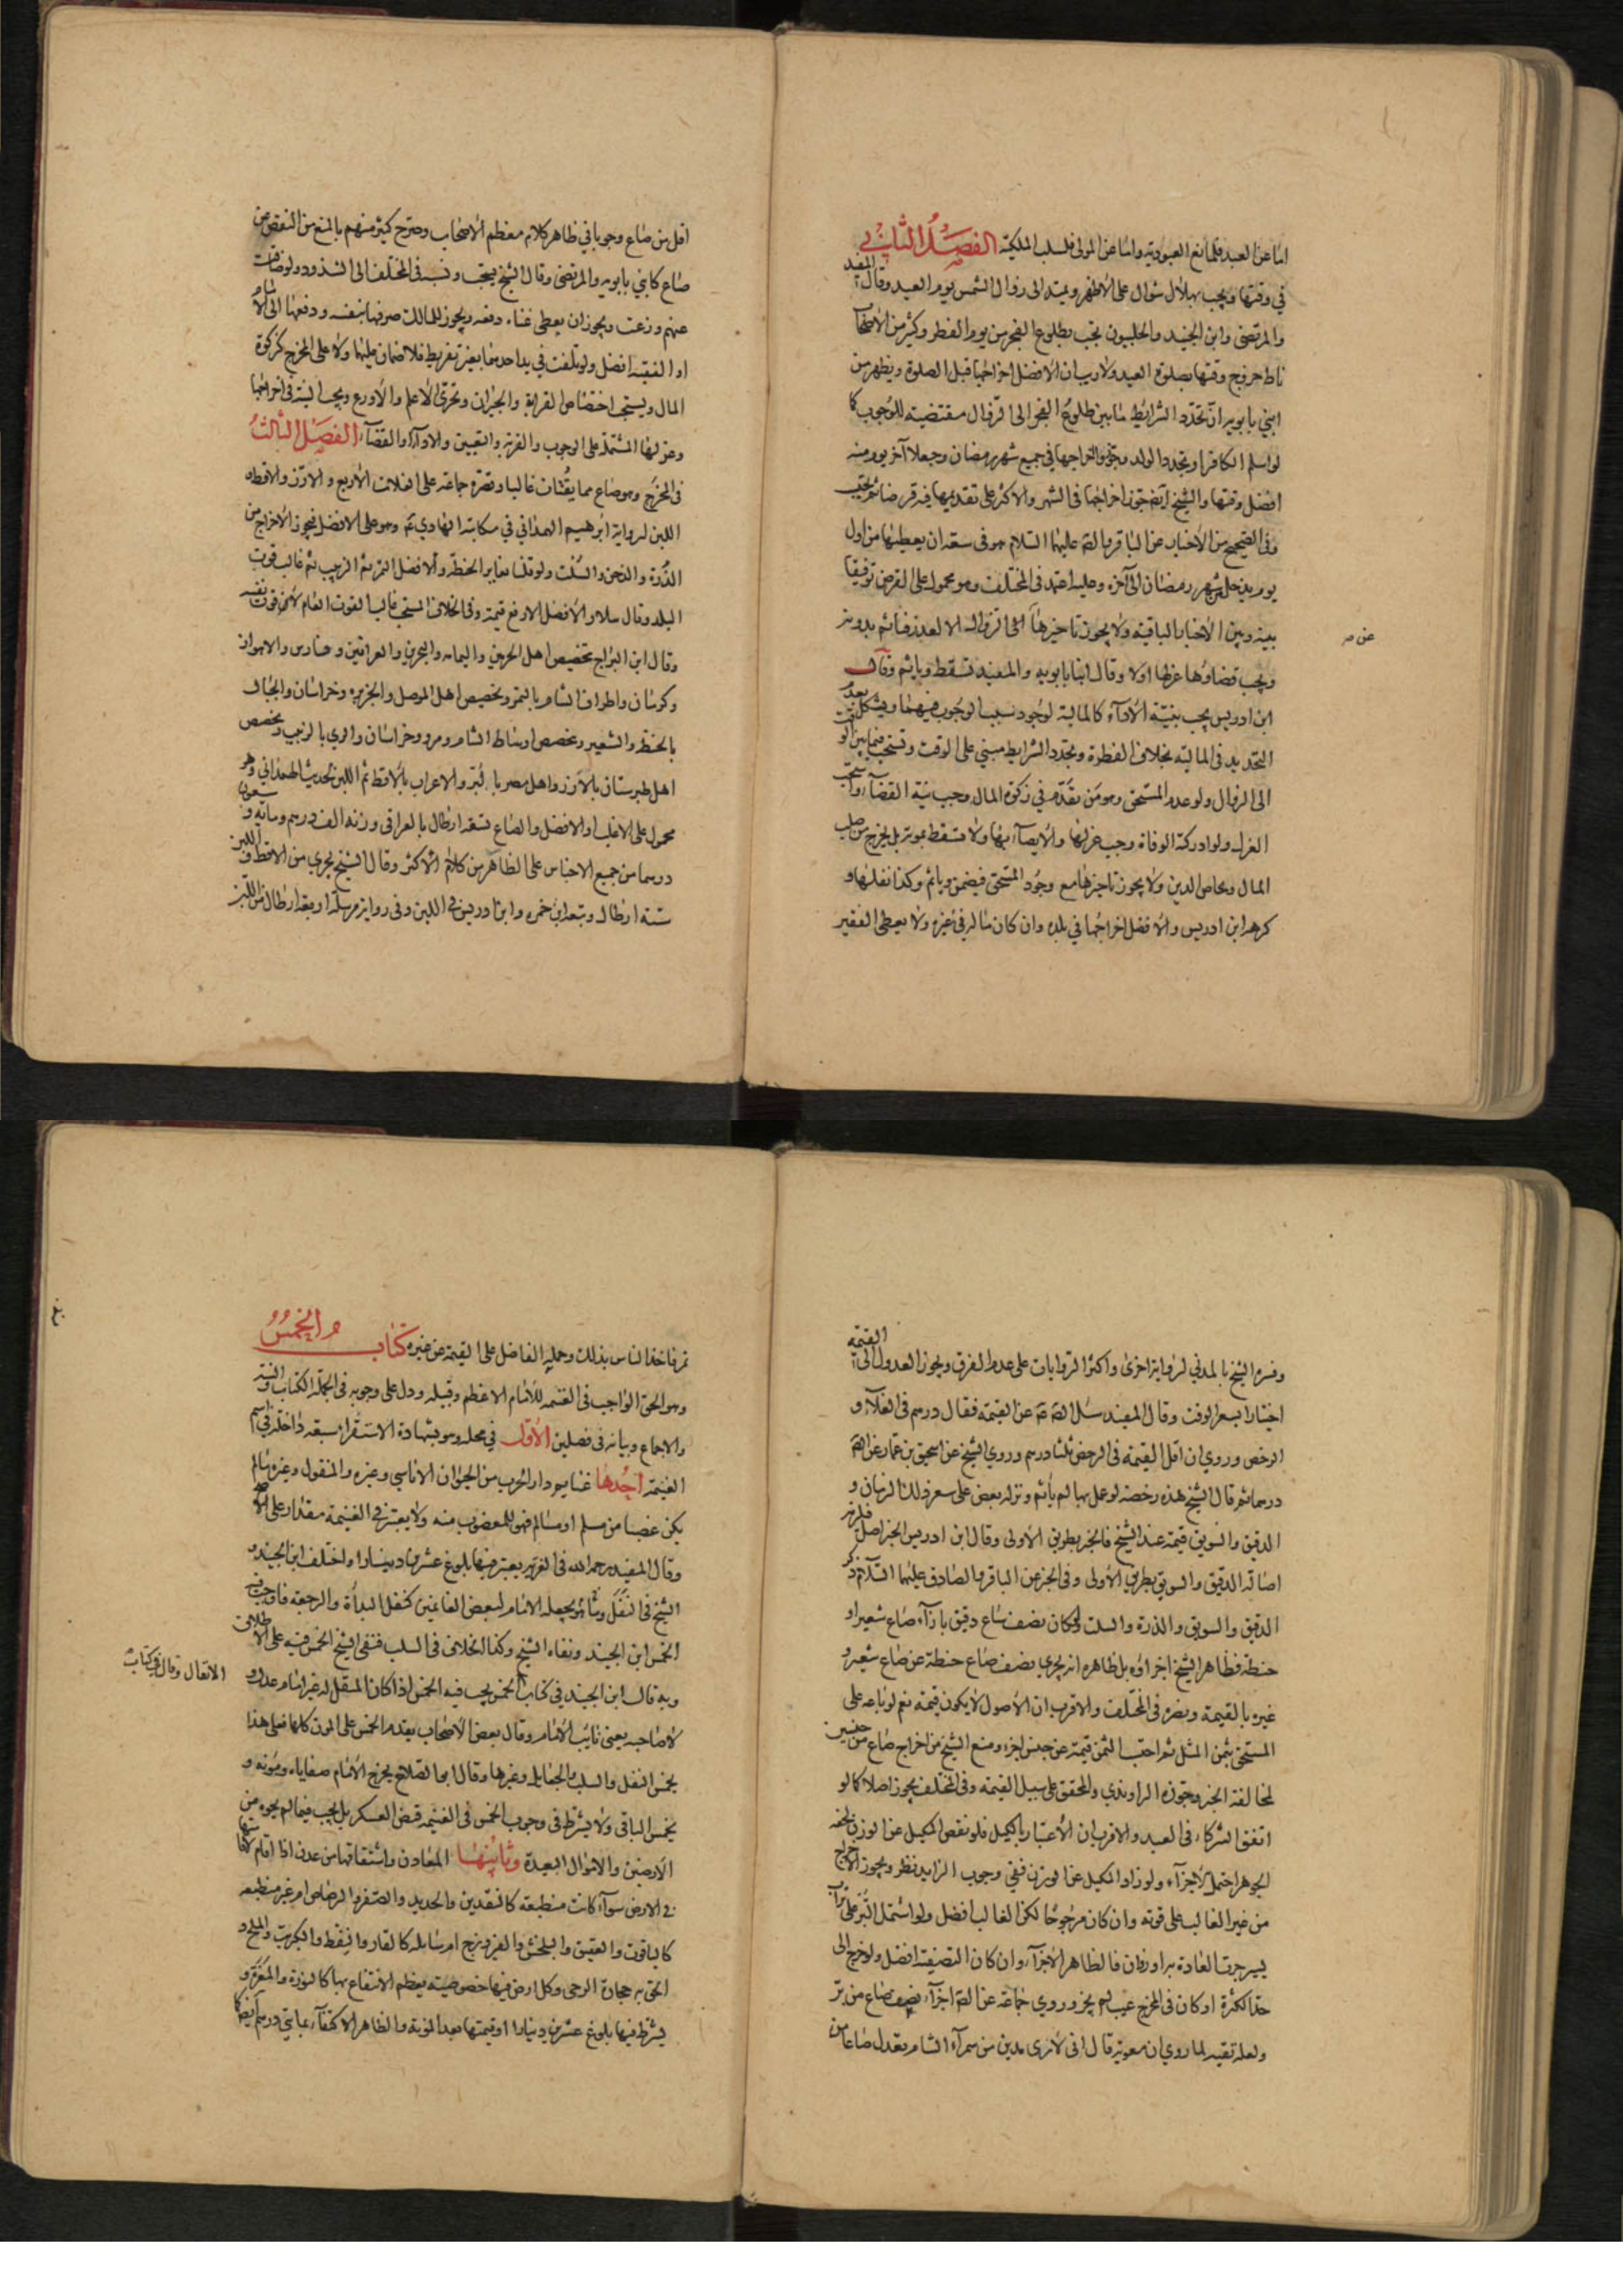 اما عن العبد فلمانع العبودية واما عن المولى فلسلب الملكية الفصل الثاني
في وقتها ويجب بهلال شوال على الاظهر ويمتد الى زوال الشمس يوم العيد وقال المفيد
والمرتضى وابن الجنيد والحلبيون تجب بطلوع الفجر من يوم الفطر وكثير من الاصحاب
ناط خروج وقتها بصلوة العيد ولا ريب ان الافضل اخراجها قبل الصلوة ويظهر من
ابني بابويه ان تجدد الشرائط ما بين طلوع الفجر الى الزوال مقتضية للوجوب كما
لو اسلم الكافر او تجدد الولد وجوزوا اخراجها في جميع شهر رمضان وجعلا آخر يوم منه
افضل وقتها والشيخ ايضا جوز اخراجها في الشهر والاكثر على تقديمها فيه قرضا ثم يحتسب
وفي الصحيح من الاخبار عن الباقر والصادق عليهما السلام هو في سعة ان يعطيها من اول
يوم يدخل من شهر رمضان الى آخره وعليه اعتمد في المختلف وهو محمول على القرض توفيقا
بينه وبين الاخبار الباقية ولا يجوز تاخيرها عن الزوال الا لعذر فياثم بدونه
عن صح
ويجب قضاؤها عزلها اولا وقال ابنا بابويه والمفيد تسقط وياثم وقال
ابن ادريس يجب بنية الاداء كالمالية لوجود سبب الوجوب فيهما ويشكل بعدم
التحديد في المالية بخلاف الفطرة وتجدد الشرايط مبني على الوقت وتستحب فيما بين الوقت
الى الزوال ولو عدم المستحق وهو من تقدم في زكوة المال وجب نية القضاء واستحب
العزل ولو ادركته الوفاة وجب عزلها والايصاء بها ولا تسقط بموته بل يخرج من صلب
المال ويحاص الدين ولا يجوز تاخيرها مع وجود المستحق فيضمن وياثم وكذا نقلها و
كرهه ابن ادريس والافضل اخراجها في بلده وان كان ماله في غيره ولا يعطى الفقير
اقل من صاع وجوبا في ظاهر كلام معظم الاصحاب وصرح كثير منهم بالمنع من النقص عن
صاع كابني بابويه والمرتضى وقال الشيخ يستحب ونسبه في المختلف الى الشذوذ ولو ضاقت
عنهم وزعت ويجوز ان يعطى غناء دفعة ويجوز للمالك صرفها بنفسه ودفعها الى الامام
او الفقيه افضل ولو تلفت في يد احدهما بغير تفريط فلا ضمان عليهما ولا على المخرج كزكوة
المال ويستحب اختصاص القرابة والجيران وتحرى الاعلم والاورع ويجب النية في اخراجها
وعزلها المشتملة على الوجوب والقربة والتعيين والاداء او القضاء الفصل الثالث
في المخرج وهو صاع مما يقتات غالبا وقصره جماعة على الغلات الاربع والارز والاقط و
اللبن لرواية ابرهيم الهمداني في مكاتبة الهادي ع وهو على الافضل فيجوز الاخراج من
الذرة والدخن والسلت ولو قلنا بمغايرة الحنطة والافضل التمر ثم الزبيب ثم غالب قوت
البلد وقال سلار الافضل الارفع قيمة وفي الخلاف المستحب غالب القوت العام لا من قوت نفسه
وقال ابن البراج تخصيص اهل الحرمين واليمامة والبحرين والعراقين وفارس والاهواز
وكرمان واطراف الشام بالتمر وتخصيص اهل الموصل والجزيرة وخراسان والجبال
بالحنطة والشعير وتخصص اوساط الشام ومرو وخراسان والري بالزبيب وتخصص
اهل طبرستان بالارز واهل مصر بالبر والاعراب بالاقط ثم اللبن لحديث الهمداني وهو
محمول على الاغلب او الافضل والصاع تسعة ارطال بالعراقي وزنه الف درهم ومائة وسبعون
درهما من جميع الاجناس على الظاهر من كلام الاكثر وقال الشيخ يجزي من الاقط واللبن
ستة ارطال وتبعه ابن حمزة وابن ادريس في اللبن وفي رواية مرسلة اربعة ارطال من اللبن
وفسره الشيخ بالمدني لرواية اخرى واكثر الروايات على عدم الفرق ويجوز العدول الى القيمة
اختيارا بسعر الوقت وقال المفيد سئل الصادق ع عن القيمة فقال درهم في الغلاء و
الرخص وروي ان اقل القيمة في الرخص ثلثا درهم وروي الشيخ عن اسحق بن عمار عن الصادق
درهما ثم قال الشيخ هذه رخصة لو عمل بها لم ياثم ونزله بعض على سعر ذلك الزمان و
الدقيق والسويق قيمة عند الشيخ فالخبز بطريق الاولى وقال ابن ادريس الخبز اصل فلزمه
اصالة الدقيق والسويق بطريق الاولى وفي الخبر عن الباقر والصادق عليهما السلام ذكر
الدقيق والسويق والذرة والسلت ولو كان نصف صاع دقيق بازاء صاع شعير او
حنطة فظاهر الشيخ اجزاؤه بل ظاهره انه يجزي نصف صاع حنطة عن صاع شعير و
غيره بالقيمة ونصره في المختلف والاقرب ان الاصول لا يكون قيمة نعم لو باعه على
المستحق بثمن المثل ثم احتسب الثمن قيمة عن جنس اجزء ومنع الشيخ من اخراج صاع من جنسين
لمخالفة الخبر وجوزه الراوندي والمحقق على سبيل القيمة وفي المختلف يجوز اصلا كما لو
اتفق الشركاء في العبد والاقرب ان الاعتبار بالكيل فلو نقص المكيل عن الوزن لخفة
الجوهر احتمل الاجزاء ولو زاد المكيل عن الوزن ففي وجوب الزايد نظر ويجوز الاخراج
من غير الغالب على قوته وان كان مرجوحا لكن الغالب افضل ولو اشتمل البر على تراب
يسير جرت العادة به او زوان فالظاهر الاجزاء وان كان التصفية افضل ولو خرج الى
حد الكثرة او كان في المخرج عيب لم يجز وروي جماعة عن الصادق اجزاء نصف صاع من بر
ولعله تقية لما روي ان معوية قال اني لارى مدين من سمراء الشام يعدل صاعا من
تمر فاخذ الناس بذلك وحمله الفاضل على القيمة عن غيره كتاب الخمس
وهو الحق الواجب في الغنيمة للامام الاعظم وقبيله ودل على وجوبه في الجملة الكتاب والسنة
والاجماع وبيانه في فصلين الاول في محله وهو بشهادة الاستقراء سبعة داخلة في اسم
الغنيمة احدها غنايم دار الحرب من الحيوان الاناسي وغيره والمنقول وغيره ما لم
يكن غصبا من مسلم او مسالم فهو للمغصوب منه ولا يعتبر في الغنيمة مقدار على الاصح
وقال المفيد رحمه الله في الغرية يعتبر فيها بلوغ عشرين دينارا واختلف ابن الجنيد و
الشيخ في النفل وهو ما يجعله الامام لبعض الغانمين كنفل البدأة والرجعة فاوجب فيه
الخمس ابن الجنيد ونفاه الشيخ وكذا الخلاف في السلب فنفى الشيخ الخمس فيه على الاطلاق
الانفال وقال في كتاب
وبه قال ابن الجنيد في كتاب الخمس يجب فيه الخمس اذا كان المنفل له غير امام عدل و
لا صاحبه يعني نايب الامام وقال بعض الاصحاب يقدم الخمس على المون كلها فعلى هذا
يخمس النفل والسلب والجعايل وغيرها وقال ابو الصلاح يخرج الامام صفاياه ومؤنه و
يخمس الباقي ولا يشترط في وجوب الخمس في الغنيمة قبض العسكر بل يجب فيما لم يحوه من
الارضين والاموال البعيدة وثانيها المعادن واشتقاقها من عدن اذا اقام لاقامتها
في الارض سواء كانت منطبعة كالنقدين والحديد والصفر والرصاص ام غير منطبعة
كالياقوت والعقيق والبلخش والفيروزج ام سايلة كالقار والنفط والكبريت والملح و
الحق به حجارة الرحى وكل ارض فيها خصوصية يعظم الانتفاع بها كالنورة والمغرة و
يشترط فيها بلوغ عشرين دينارا او قيمتها بعد المؤنة والظاهر الاكتفاء بمائتي درهم ايضا كما